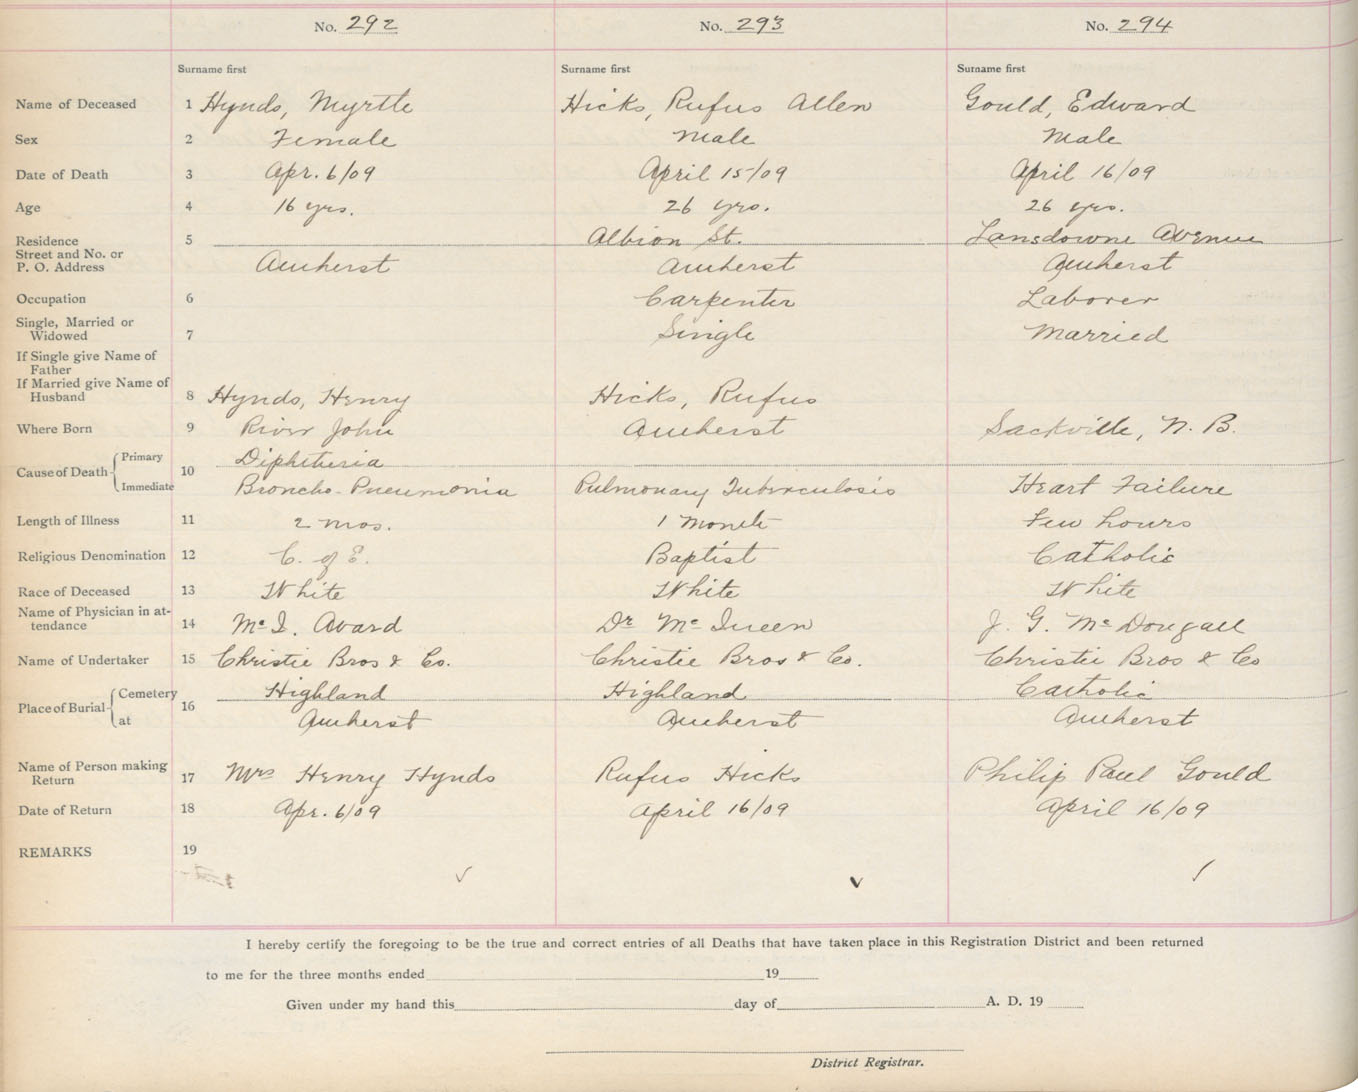 No. 292 No. 293 No. 294
Surname first Surname first Surname first
Name of Deceased 1 Hynds, Myrtle Hicks, Rufus Allen Gould, Edward
Sex 2 Female Male Male
Date of Death 3 Apr. 6/09 April 15/09 April 16/09
Age 4 16 yrs. 26 yrs. 26 yrs.
Residence 5 Albion St. Lansdowne Avenue
Street and No. or
P. O. Address Amherst Amherst Amherst
Occupation 6 Carpenter Laborer
Single, Married or
Widowed 7 Single Married
If Single give Name of
Father
If Married give Name of
Husband 8 Hynds, Henry Hicks, Rufus
Where Born 9 River John Amherst Sackville, N. B.
Primary Diphtheria
Cause of Death 10
Immediate Broncho-Pneumonia Pulmonary Tuberculosis Heart Failure
Length of Illness 11 2 mos. 1 Month Few hours
Religious Denomination 12 C. of E. Baptist Catholic
Race of Deceased 13 White White White
Name of Physician in at-
tendance 14 Avard Dr Mc Queen J. G. Mc Dougall
Name of Undertaker 15 Christie Bros & Co. Christie Bros & Co. Christie Bros & Co
Cemetery Highland Highland Catholic
Place of Burial 16
at Amherst Amherst Amherst
Name of Person making
Return 17 Mrs Henry Hynds Rufus Hicks Philip Paul Gould
Date of Return 18 Apr. 6/09 April 16/09 April 16/09
REMARKS 19
I hereby certify the foregoing to be the true and correct entries of all Deaths that have taken place in this Registration District and been returned
to me for the three months ended 19
Given under my hand this day of A. D. 19
District Registrar.